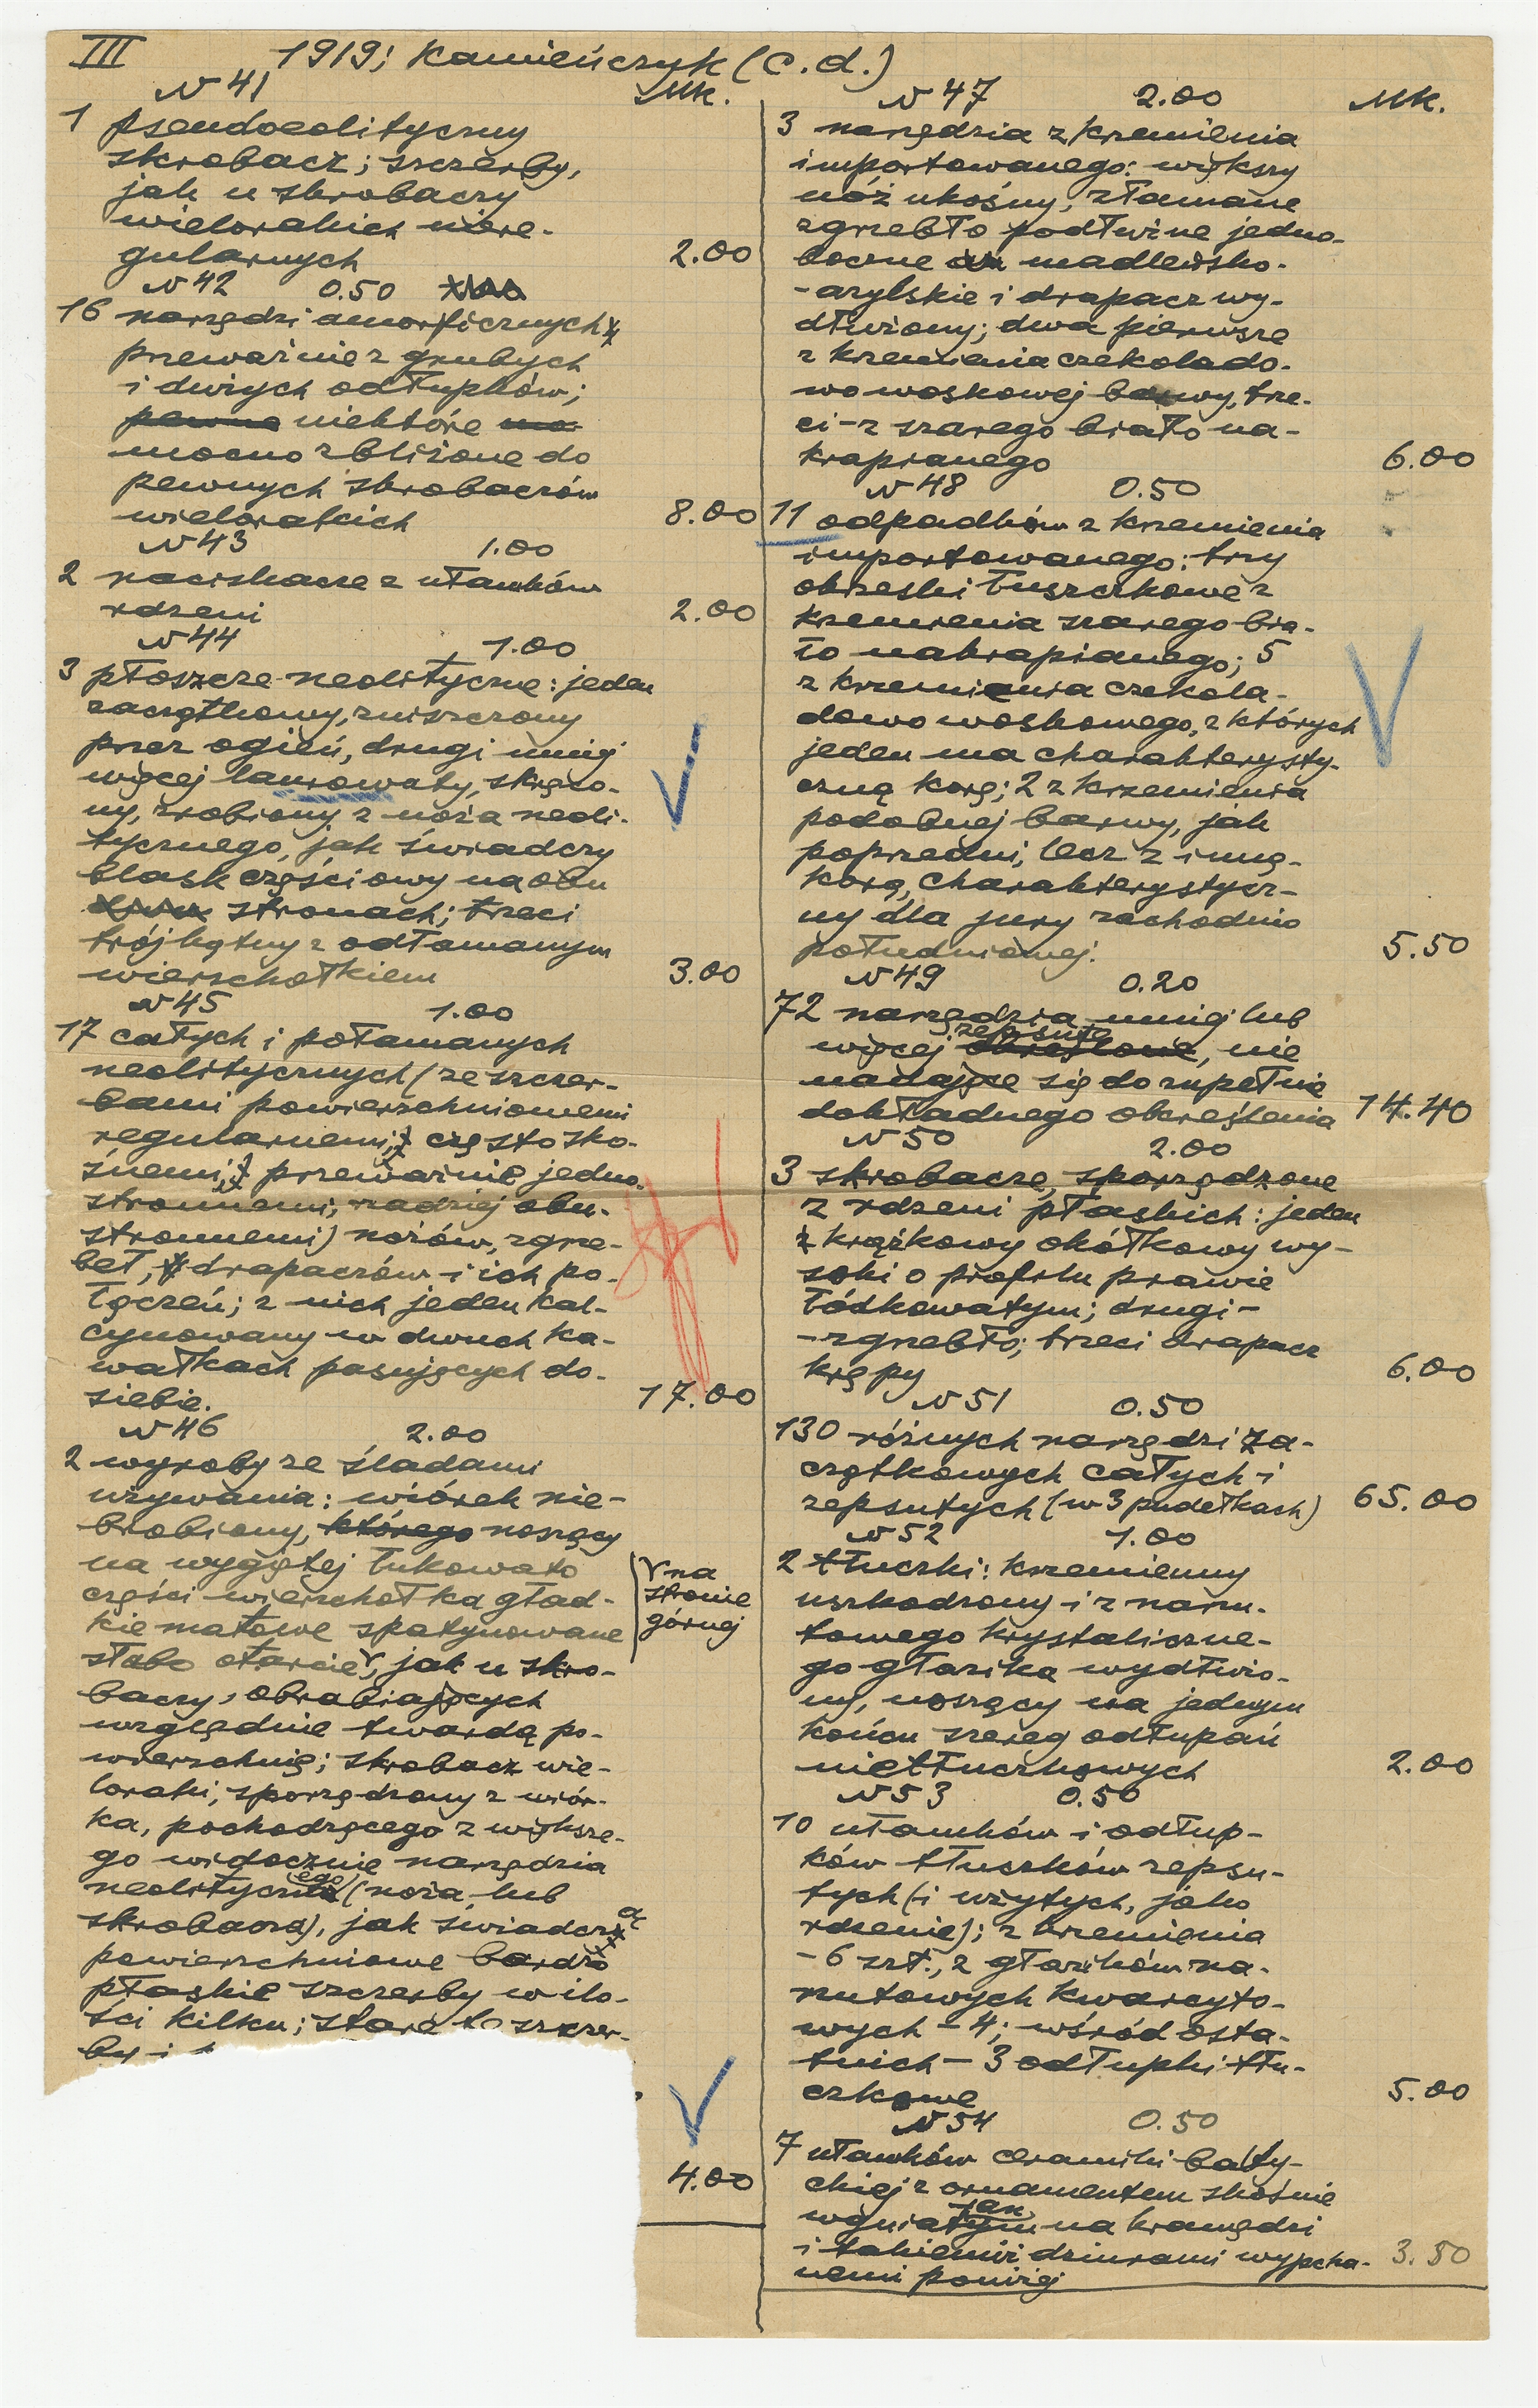 III 1919; Kamieńczyk (c.d.)
N 41 Mk.
1 pseudoeolityczny
skrobacz; szczerby,
jak u skrobaczy
wielorakich niere-
gularnych 2.00
N 42 0.50
16 narzędzi amorficznych
przeważnie z grubych
i dużych odłupków;
pewne niektóre
mocno zbliżone do
pewnych skrobaczów
wielorakich 8.00
N 43 1.00
2 naciskacze z ułamków
rdzeni 2.00
N 44 1.00
3 płoszcze neolityczne: jeden
zaczątkowy, zniszczony
przez ogień, drugi mniej
więcej laurowaty, skrzo-
ny, zrobiony z noża neoli-
tycznego, jak świadczy
blask częściowy na obu
stronach; trzeci
trójkątny z odłamanym
wierzchołkiem 3.00
N 45 1.00
17 całych i połamanych
neolitycznych (ze szczer-
bami powierzchniowemi
regularnemi, często sko-
śnemi, przeważnie jedno-
stronnemi; rzadziej obu-
stronnemi) nożów, zgrze-
beł, drapaczów i ich po-
łączeń; z nich jeden kal-
cynowany w dwuch ka-
wałkach pasujących do-
siebie. 17.00
N 46 2.00
2 wyroby ze śladami
używania: wiórek nie-
brobiony, którego noszący
na wygiętej łukowato
części wierzchołka gład-
kie matowe spatynowane
słabo otarcie, jak u skro-
√ na
stronie
górnej
baczy, obrabiających
względnie twardą po-
wierzchnię; skrobacz wie-
loraki, sporządzony z wiór-
ka, pochodzącego z większe-
go widocznie narzędzia
neolitycznego (noża lub
skrobacza), jak świadczą
powierzchniowe bardzo
płaskie szczerby w ilo-
ści kilku; stare te szczer-
by i
4.00
N 47 2.00 Mk.
3 narzędzia z krzemienia
importowanego: większy
nóż ukośny, złamane
zgrzebło podłużne jedno-
boczne madleńsko-
-azylskie i drapacz wy-
dłużony; dwa pierwsze
z krzemienia czekolado-
wo woskowej barwy, trze-
ci - z szarego biało na-
krapianego 6.00
N 48 0.50
11 odpadków z krzemienia
importowanego: trzy
okrzeski łuszczkowe z
krzemienia szarego bia-
ło nakrapianego; 5
z krzemienia czekola-
dowo woskowego, z których
jeden ma charakterysty-
czną korę; 2 z krzemienia
podobnej barwy, jak
poprzedni, lecz z inną
korą, charakterystycz-
ny dla jury zachodnio
południowej. 5.50
N 49 0.20
72 narzędzia mniej lub
więcej zepsute, nie
nadające się do zupełnie
dokładnego określenia 14.40
N 50 2.00
3 skrobacze, sporządzone
z rdzeni płaskich: jeden
krążkowy okółkowy wy-
soki o profilu prawie
łódkowatym; drugi -
- zgrzebło; trzeci drapacz
krępy 6.00
N 51 0.50
130 różnych narzędzi za-
czątkowych całych i
zepsutych (w 3 pudełkach) 65.00
N 52 1.00
2 tłuczki: krzemienny
uszkodzony i z narzu-
towego krystaliczne-
go głazika wydłużo-
ny, noszący na jednym
końcu szereg odłupań
nietłuczkowych 2.00
N 53 0.50
10 ułamków i odłup-
ków tłuczków zepsu-
tych (i użytych, jako
rdzenie); z krzemienia
- 6 szt., z głazików na-
rzutowych kwarcyto-
wych - 4; wśród osta-
tnich - 3 odłupki tłu-
czkowe 5.00
N 54 0.50
7 ułamków ceramiki bałty-
ckiej z ornamentem skośnie
wgniatanym na krawędzi
i takiemiż dziurami wypcha- 3.50
nemi poniżej